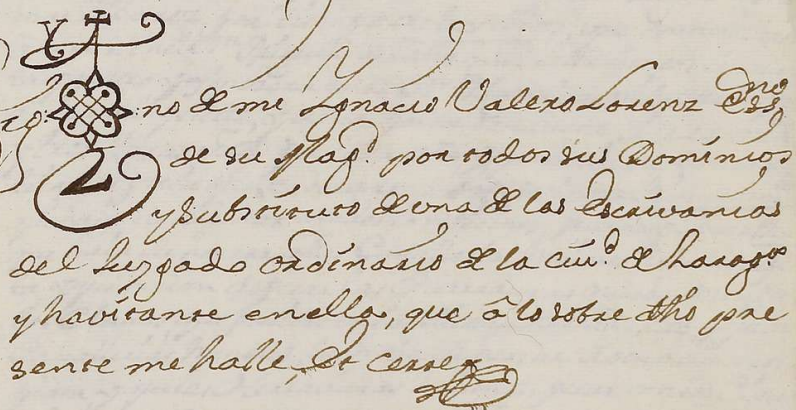 Sig no de mi Ygnacio Valero Lorenz Essno
de su Magd. por todos sus Dominios
y substituto de una de las Escrivanias
del Juzgado ordinario de la ciud. de Zaragza
y havitante en ella, que â lo sobre dho pre
sente me halle, Et cerre